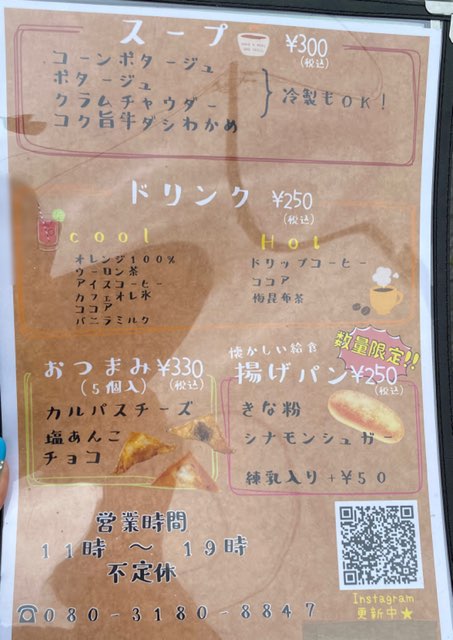 スープ ¥300
(税込)
コーンポタージュ
ポタージュ
クラムチャウダー
コク旨牛ダシわかめ
冷製もOK!
ドリンク ¥250
(税込)
cool
オレンジ100%
ウーロン茶
アイスコーヒー
カフェオレ氷
ココア
バニラミルク
Hot
ドリップコーヒー
ココア
梅昆布茶
おつまみ ¥330
(5個入) (税込)
カルパスチーズ
塩あんこ
チョコ
懐かしい給食
数量限定!!
揚げパン ¥250
(税込)
きな粉
シナモンシュガー
練乳入り+¥50
営業時間
11時 〜 19時
不定休
☎080-3180-8847
Instagram
更新中★